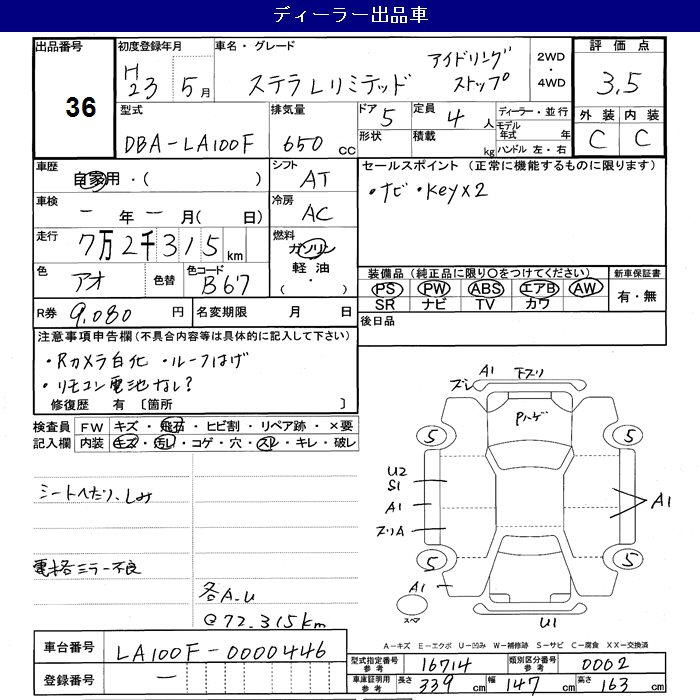 ディーラー出品車
出品番号 36
初度登録年月 H23 5月
車名・グレード ステラLリミテッド アイドリングストップ
2WD・4WD
評価点 3.5
外装 内装
C C
型式 DBA-LA100F
排気量 650cc
ドア 5
形状
定員 4人
積載 kg
ディーラー・並行
モデル年式 年
ハンドル 左・右
車歴 自家用・( )
シフト AT
セールスポイント(正常に機能するものに限ります)
・ナビ ・Key×2
車検 ー年ー月( 日)
冷房 AC
走行 7万2千315km
燃料 ガソリン 軽油 (・)
色 アオ
色替
色コード B67
装備品(純正品に限り○をつけてください)
PS PW ABS エアB AW
SR ナビ TV カワ
新車保証書 有・無
R券 9,080円
名変期限 月 日
後日品
注意事項申告欄(不具合内容等は具体的に記入して下さい)
・Rカメラ白化 ・ルーフはげ
・リモコン電池なし?
修復歴 有 〔箇所 〕
検査員記入欄
FW キズ・飛石・ヒビ割・リペア跡・×要
内装 キズ・汚れ・コゲ・穴・スレ・キレ・破レ
シートへたり、しみ
電格ミラー不良
各A.U
@72.315km
A1 下スリ
ズレ
Pハゲ
5 5
U2
S1
A1 A1
スリA
5 5
A1
スペア
U1
A-キズ E-エクボ U-凹み W-補修跡 S-サビ C-腐食 XX-交換済
車台番号 LA100F-0000446
登録番号 ー
型式指定番号参考 16714
類別区分番号参考 0002
車庫証明用参考 長さ 339cm 幅 147cm 高さ 163cm